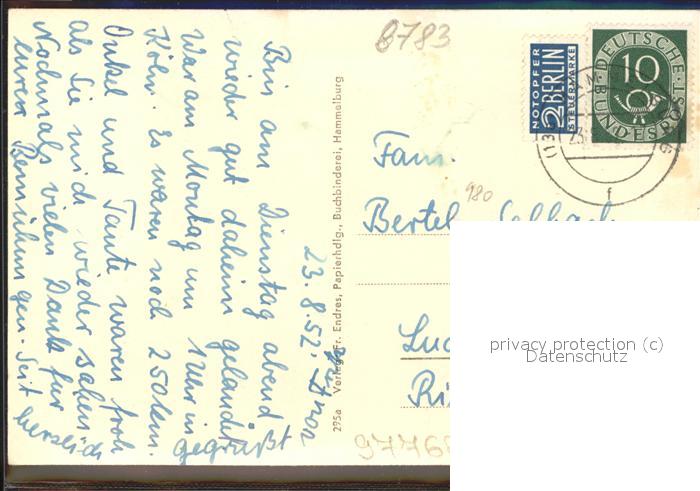 Bin am Dienstag abend
wieder gut daheim gelandet
War am Montag um 1 Uhr in
Köln. Es waren noch 250 km.
Onkel und Tante waren froh
als Sie mich wieder sahen
Nochmals vielen Dank für
euren Bemühungen. Seit herzlich
gegrüßt
23.8.52.
295a Verlag: Fr. Endres, Papierhdlg., Buchbinderei, Hammelburg
8783
NOTOPFER
2 BERLIN
STEUERMARKE
DEUTSCHE
10
BUNDESPOST
23.
f
Fam.
980
Bertel
privacy protection (c)
Datenschutz